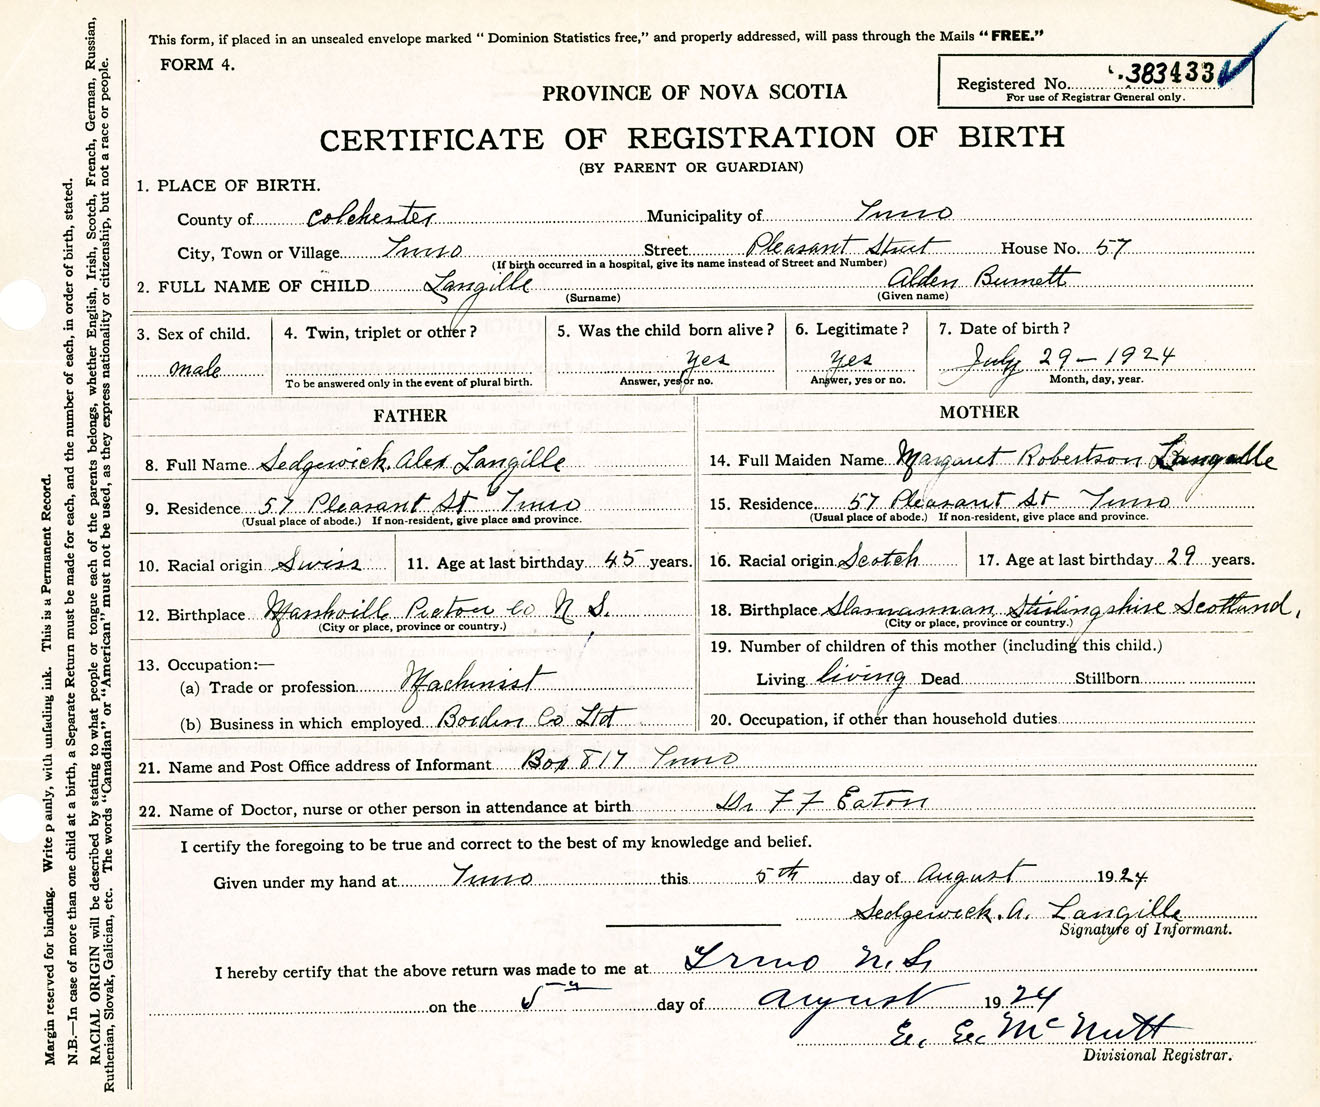 This form, if placed in an unsealed envelope marked "Dominion Statistics free," and properly addressed, will pass through the Mails "FREE."
FORM 4.
Registered No. 383433
For use of Registrar General only.
PROVINCE OF NOVA SCOTIA
CERTIFICATE OF REGISTRATION OF BIRTH
(BY PARENT OR GUARDIAN)
1. PLACE OF BIRTH.
County of Colchester Municipality of Truro
City, Town or Village Truro Street Pleasant Street House No. 57
(If birth occurred in a hospital, give its name instead of Street and Number)
2. FULL NAME OF CHILD Langille Alden Burnett
(Surname) (Given name)
3. Sex of child. 4. Twin, triplet or other? 5. Was the child born alive? 6. Legitimate? 7. Date of birth?
male yes yes July 29-1924
To be answered only in the event of plural birth. Answer, yes or no. Answer, yes or no. Month, day, year.
FATHER
8. Full Name Sedgewick Alex Langille
9. Residence 57 Pleasant St Truro
(Usual place of abode.) If non-resident, give place and province.
10. Racial origin Swiss 11. Age at last birthday 45 years.
12. Birthplace Marshville Pictou Co N.S.
(City or place, province or country.)
13. Occupation:—
(a) Trade or profession Machinist
(b) Business in which employed Borden Co Ltd
MOTHER
14. Full Maiden Name Margaret Robertson Langille
15. Residence 57 Pleasant St Truro
(Usual place of abode.) If non-resident, give place and province.
16. Racial origin Scotch 17. Age at last birthday 29 years.
18. Birthplace Slamannan Stirlingshire Scotland.
(City or place, province or country.)
19. Number of children of this mother (including this child.)
Living living Dead Stillborn
20. Occupation, if other than household duties
21. Name and Post Office address of Informant Box 817 Truro
22. Name of Doctor, nurse or other person in attendance at birth Dr F F Eaton
I certify the foregoing to be true and correct to the best of my knowledge and belief.
Given under my hand at Truro this 5th day of August 1924
Sedgewick. A. Langille
Signature of Informant.
I hereby certify that the above return was made to me at Truro N.S.
on the 5th day of August 1924
E. E. McNutt
Divisional Registrar.
Margin reserved for binding. Write p ainly, with unfading ink. This is a Permanent Record.
N.B.—In case of more than one child at a birth, a Separate Return must be made for each, and the number of each, in order of birth, stated.
RACIAL ORIGIN will be described by stating to what people or tongue each of the parents belongs, whether English, Irish, Scotch, French, German, Russian,
Ruthenian, Slovak, Galician, etc. The words "Canadian" or "American" must not be used, as they express nationality or citizenship, but not a race or people.